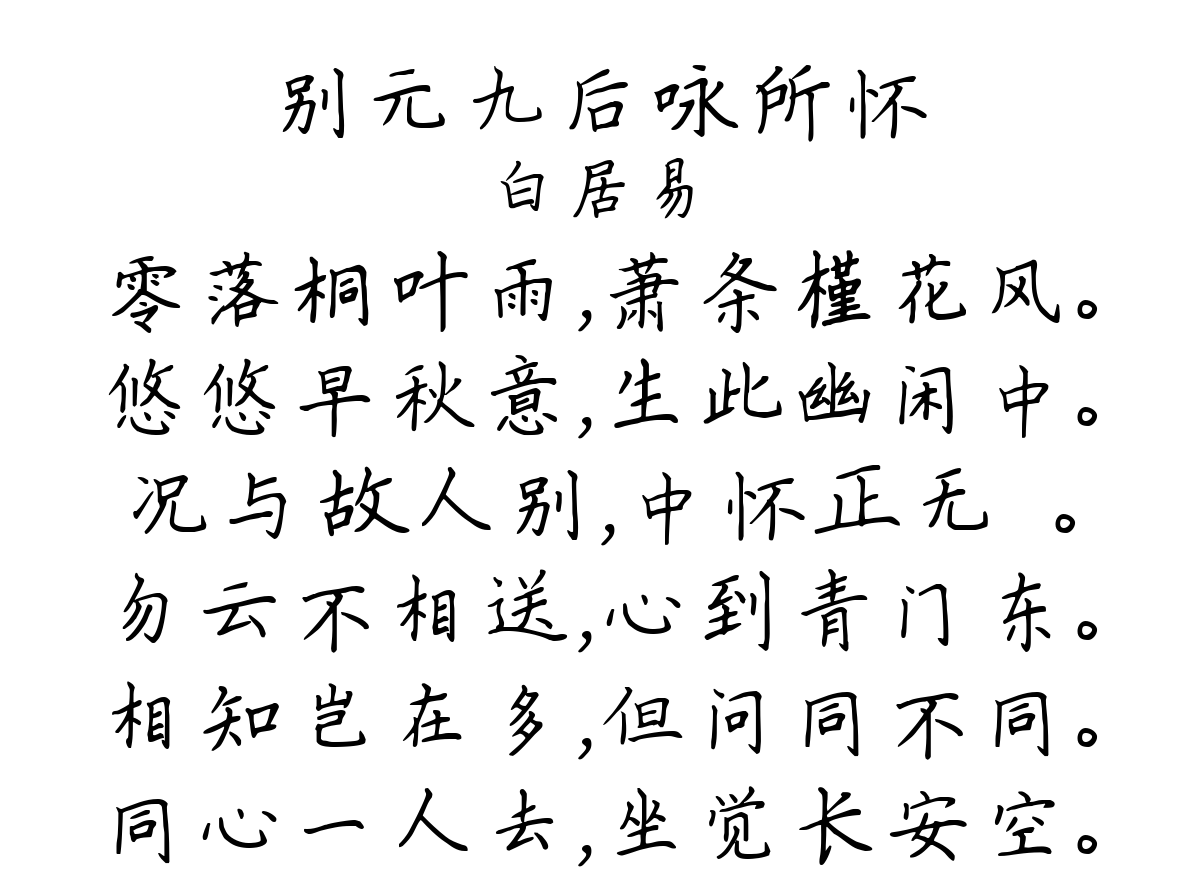 别元九后咏所怀
白居易
零落桐叶雨,萧条槿花风。
悠悠早秋意,生此幽闲中。
况与故人别,中怀正无 。
勿云不相送,心到青门东。
相知岂在多,但问同不同。
同心一人去,坐觉长安空。